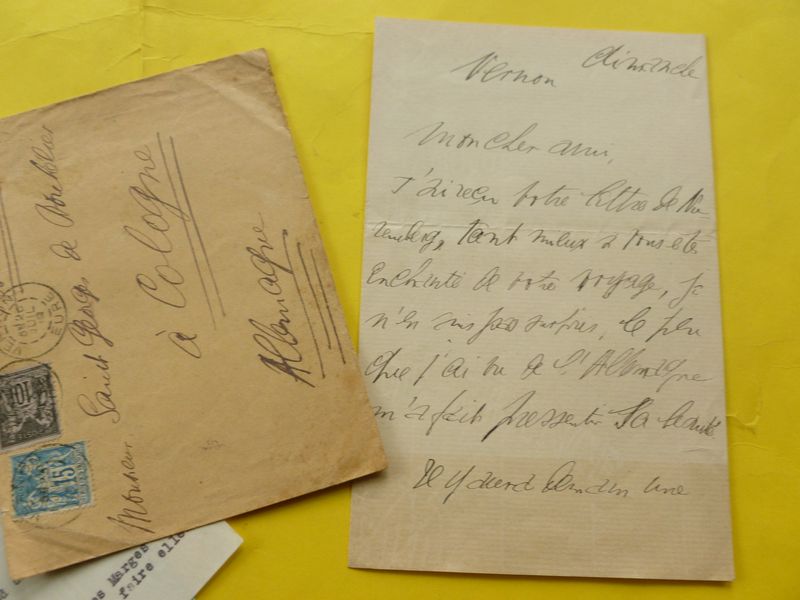 Vernon dimanche
Mon cher ami,
J'ai reçu votre lettre de Nu
remberg, tant mieux si vous êtes
enchanté de votre voyage, je
n'en suis pas surpris, le peu
que j'ai vu de l'Allemagne
m'a fait pressentir sa beauté
Il y aura demain une
Monsieur Saint Georges de Bouhélier
à Cologne
Allemagne
EURE
10
15
Marges
faire elle